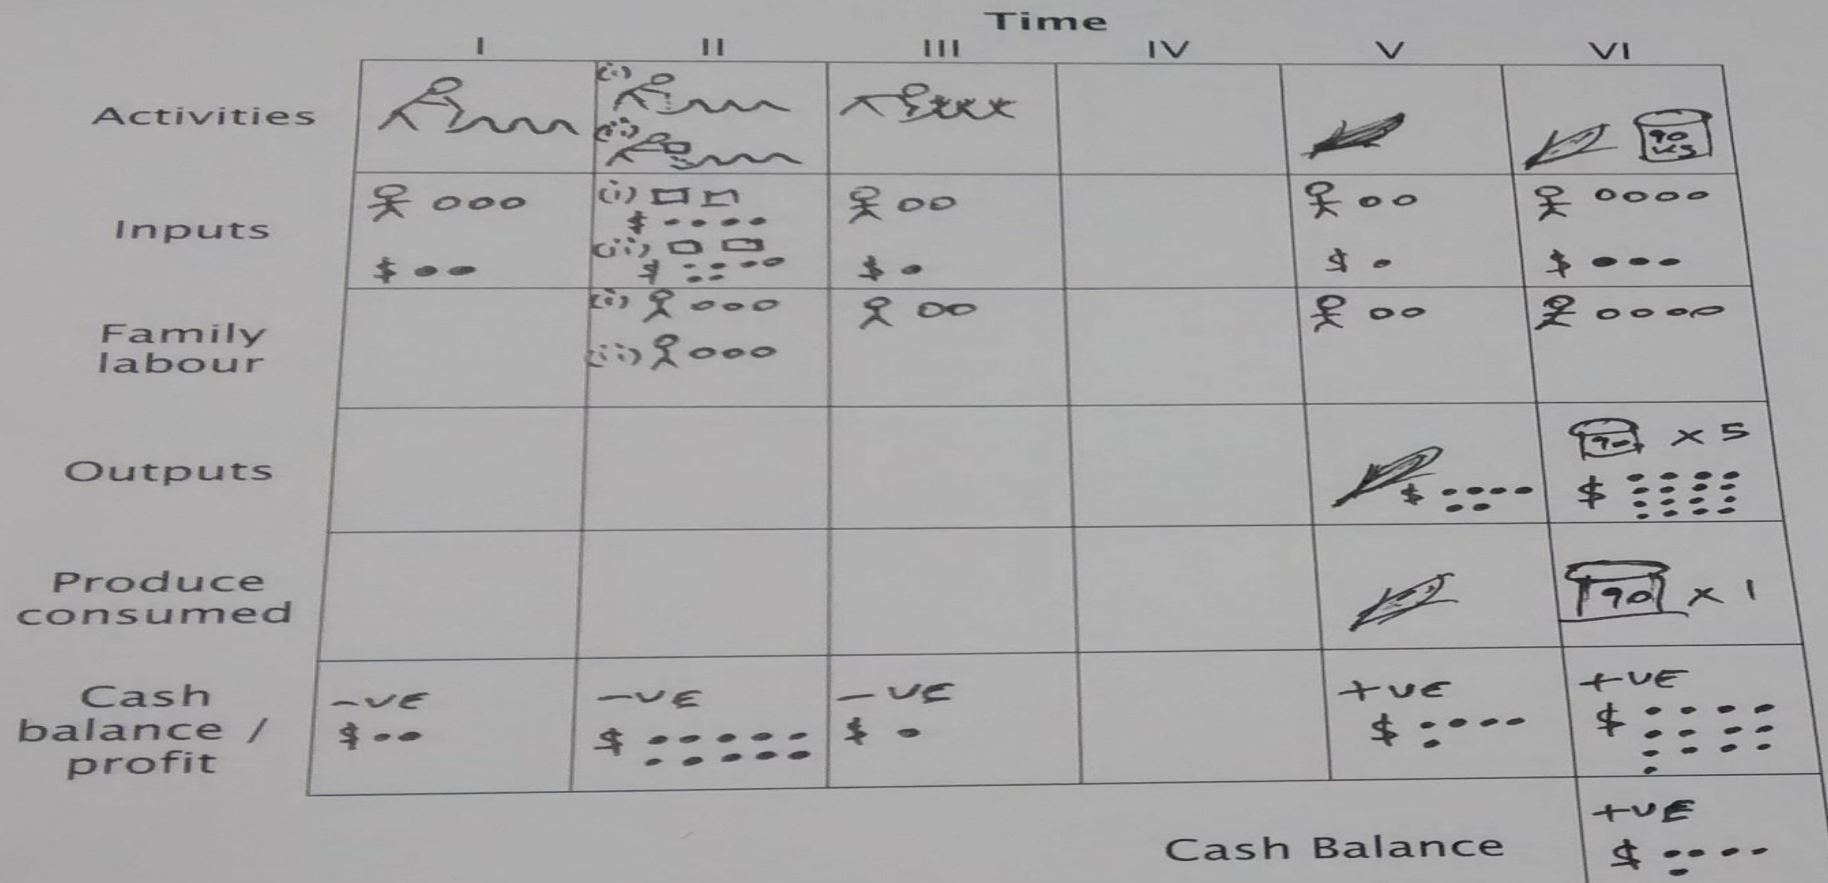 Time
I II III IV V VI
Activities
(i)
(ii)
90
KG
Inputs
(i)
$
(ii)
$
$ $ $ $
Family
labour
(i)
(ii)
Outputs
90 x 5
$ $
Produce
consumed
90 x 1
Cash
balance /
profit
-VE -VE -VE +VE +VE
$ $ $ $ $
Cash Balance
+VE
$